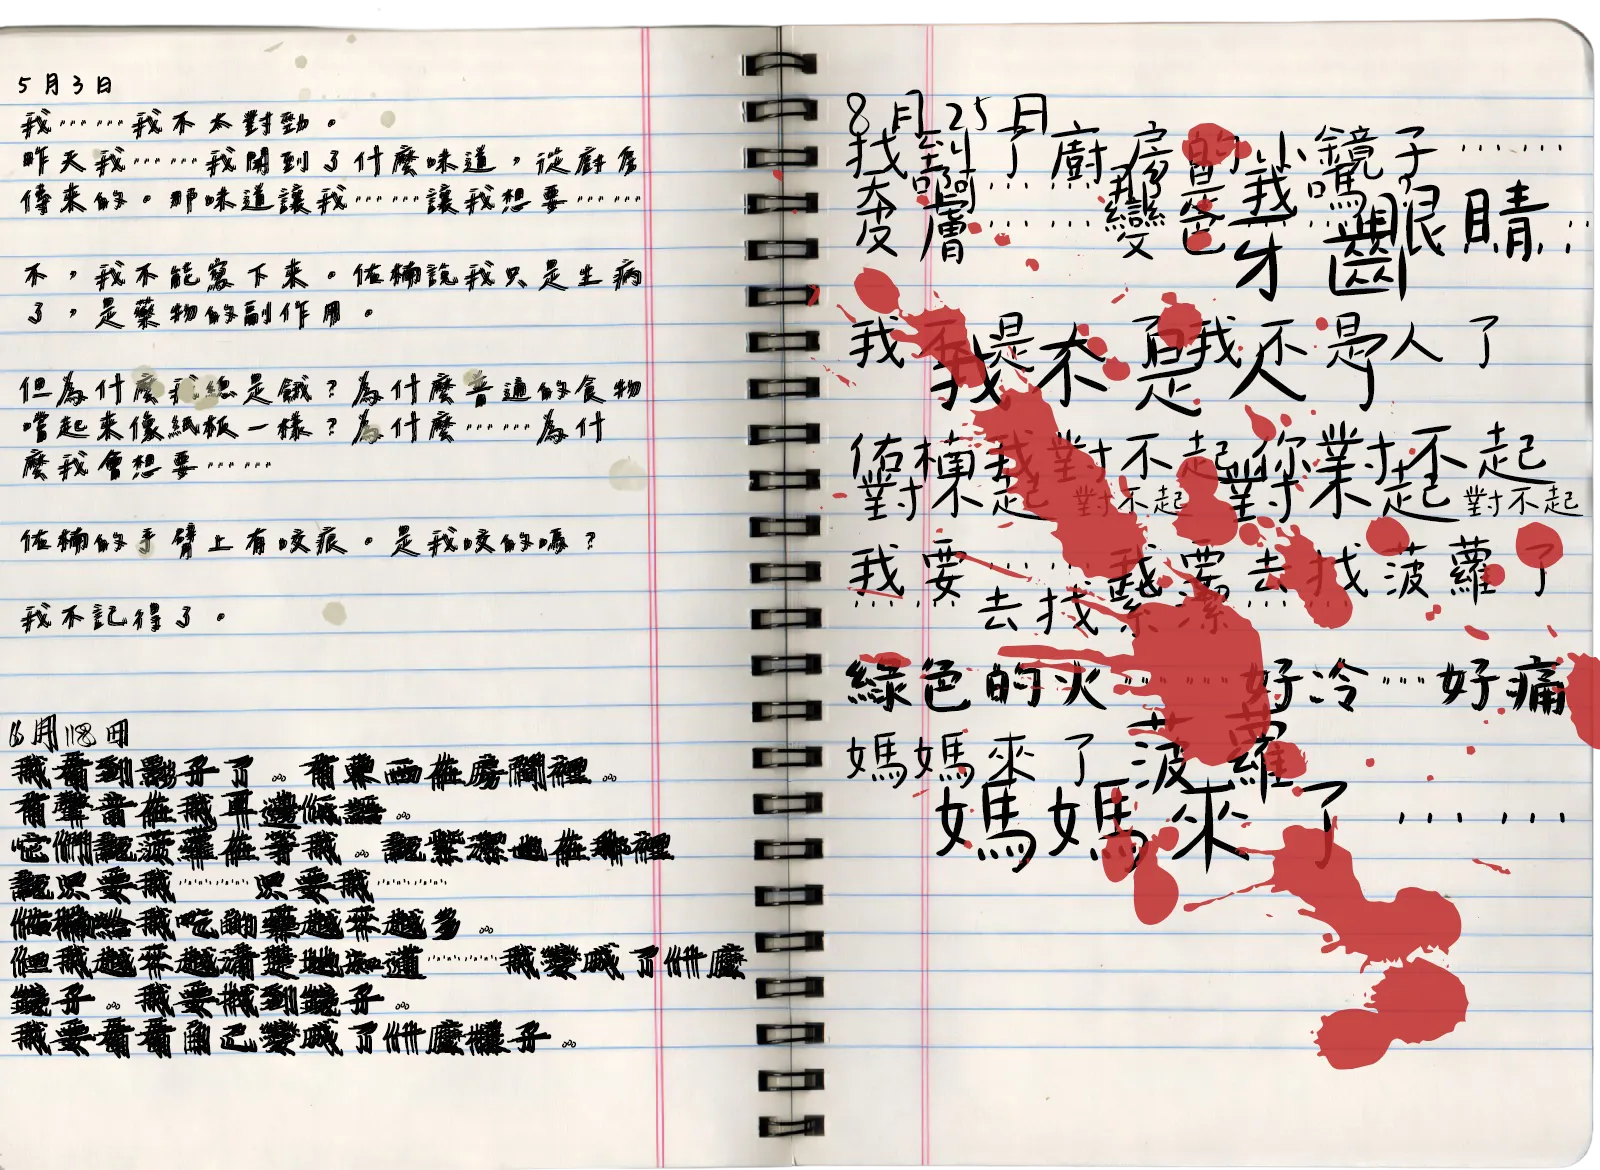 5月3日
我……我不太對勁。
昨天我……我聞到了什麼味道，從廚房
傳來的。那味道讓我……讓我想要……
不，我不能寫下來。佑楠說我只是生病
了，是藥物的副作用。
但為什麼我總是餓？為什麼普通的食物
嚐起來像紙板一樣？為什麼……為什
麼我會想要……
佑楠的手臂上有咬痕。是我咬的嗎？
我不記得了。
6月18日
我看到影子了。有東西在房間裡。
有聲音在我耳邊低語。
它們說菠蘿在等我。說縈潔也在那裡
說只要我……只要我……
佑楠給我吃的藥越來越多。
但我越來越清楚地知道……我變成了什麼
鏡子。我要找到鏡子。
我要看看自己變成了什麼樣子。
8月25日
找到了廚房的小鏡子……
皮膚……變……我 牙齒 眼睛……
我不是人了 我不是人了
我不是人了
佑楠我對不起你對不起
對不起 對不起 對不起 對不起
我要……我要去找菠蘿了
……去找縈潔……
綠色的火……好冷…好痛
媽媽來了菠蘿
媽媽來了……